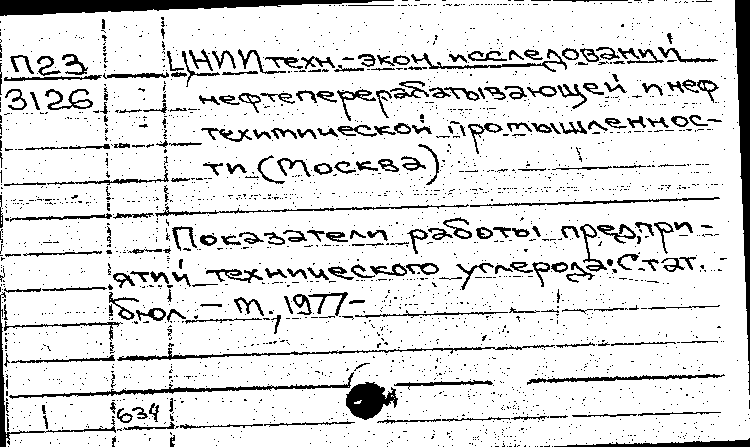 П23 ЦНИИ техн.-экон. исследований
3126 нефтеперерабатывающей и неф
техимической промышленнос-
ти (Москва)
Показатели работы предпри-
ятий технического углерода: Стат.
бюл. - М., 1977-
634